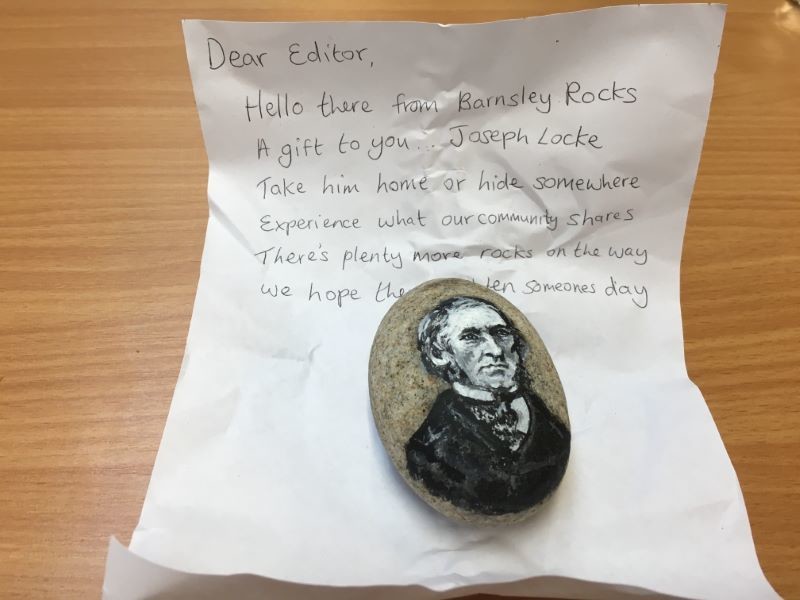 Dear Editor,
Hello there from Barnsley Rocks
A gift to you... Joseph Locke
Take him home or hide somewhere
Experience what our community shares
There's plenty more rocks on the way
we hope someones day